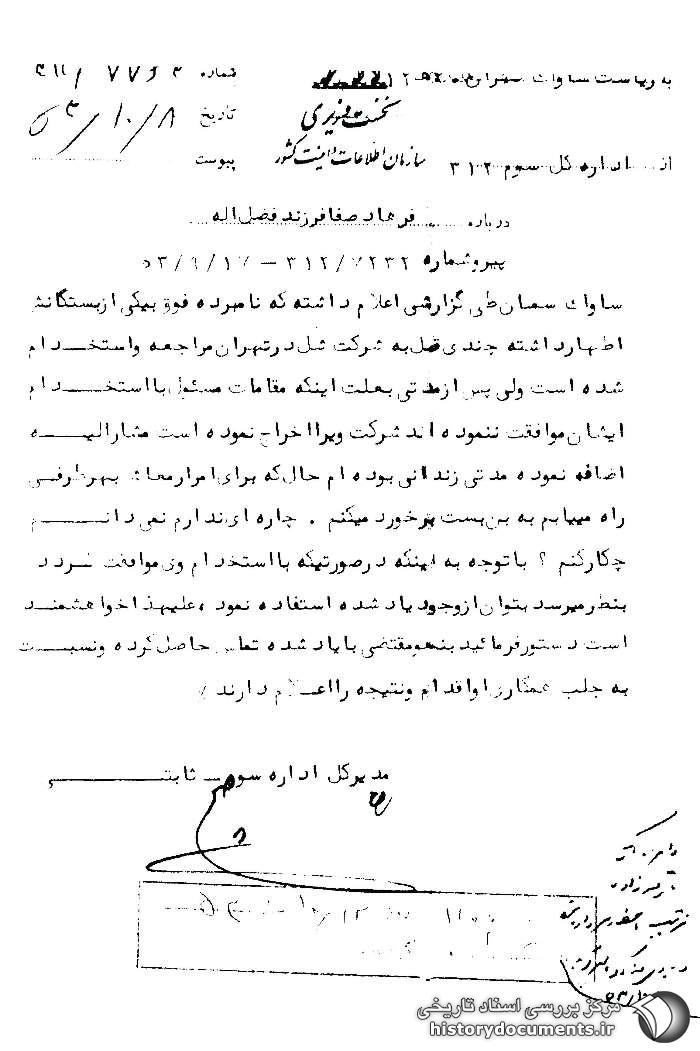 به ریاست ساواک تهران ۱۲ ه ۲۰
شماره ۳۱۲/۷۷۵۳
نخست وزیری
تاریخ ۵۳/۱۰/۸
از اداره کل سوم ۳۱۲
سازمان اطلاعات و امنیت کشور
پیوست
درباره فرهاد صفا فرزند فضل اله
پیرو شماره ۳۱۲/۷۲۳۲ – ۵۳/۹/۱۷
ساواک سمنان طی گزارشی اعلام داشته که نامبرده فوق بیکی از بستگانش
اظهار داشته چندی قبل به شرکت شل در تهران مراجعه و استخدام
شده است ولی پس از مدتی بعلت اینکه مقامات مسئول با استخدام
ایشان موافقت ننموده اند شرکت ویرا اخراج نموده است مشارالیه
اضافه نموده مدتی زندانی بوده ام حال که برای امرار معاش بهر طرفی
راه مییابم به بن بست برخورد میکنم . چاره ای ندارم نمی دانم
چکار کنم ؟ با توجه به اینکه در صورتیکه با استخدام وی موافقت گردد
بنظر میرسد بتوان از وجود یاد شده استفاده نمود ، علیهذا خواهشمند
است دستور فرمائید بنحو مقتضی با یاد شده تماس حاصل کرده و نسبت
به جلب همکاری او اقدام و نتیجه را اعلام دارند /
مدیر کل اداره سوم – ثابتی
مرکز بررسی اسناد تاریخی
historydocuments.ir